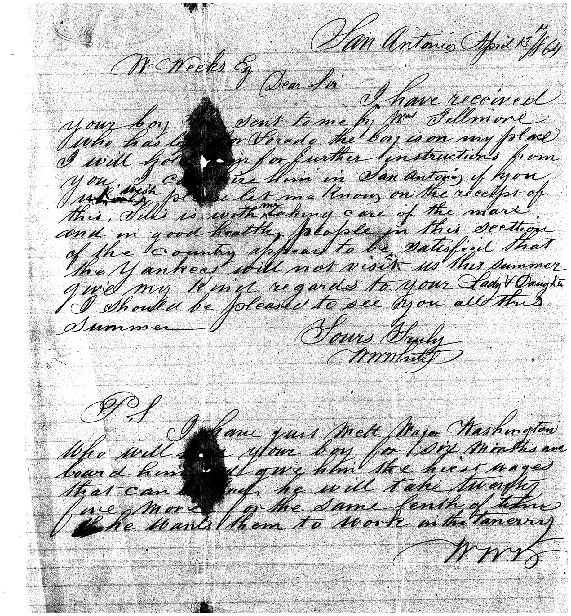 San Antonio April 13th /64
W Weeks Eq
Dear Sir
I have received
your boy sent to me by Wm Fillmore
who has the boy is on my place
I will for further instructions from
you I can him in San Antonio if you
wish please let me know on the receipt of
this. Jules is with me taking care of the mare
and in good health, people in this section
of the Country appear to be satisfied that
the Yankees will not visit us this summer
give my kind regards to your Lady & Daughter
I should be pleased to see you all this
Summer
Yours Truly
P.S
I have just Mett Major Washington
who will your boy for six months and
board him give him the highest wages
that can he will take twenty
five More for the same lenth of time
he wants them to work in the tanerry